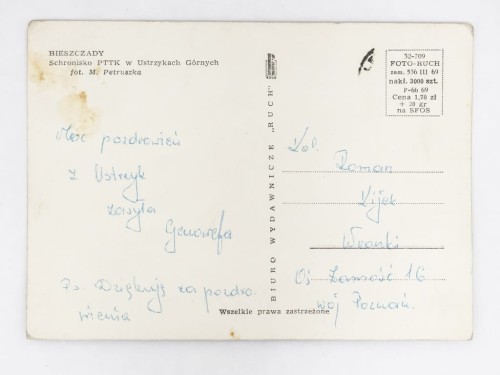 BIESZCZADY
Schronisko PTTK w Ustrzykach Górnych
fot. M. Petruszka
52-709
FOTO-RUCH
zam. 536 III 69
nakł. 3000 szt.
P-66 69
Cena 1,70 zł
+ 20 gr
na SFOS
Moc pozdrowień
z Ustrzyk
zasyła
Genowefa
Ps. Dziękuję za pozdro
wienia
BIURO WYDAWNICZE „RUCH"
Kol.
Roman
Kijek
Wronki
Oś Zamość 16
woj Poznań.
Wszelkie prawa zastrzeżone